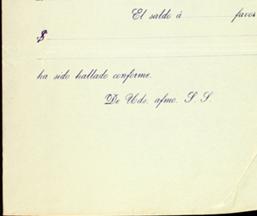 El saldo á favor
$
ha sido hallado conforme.
De Uds. afmo. S. S.